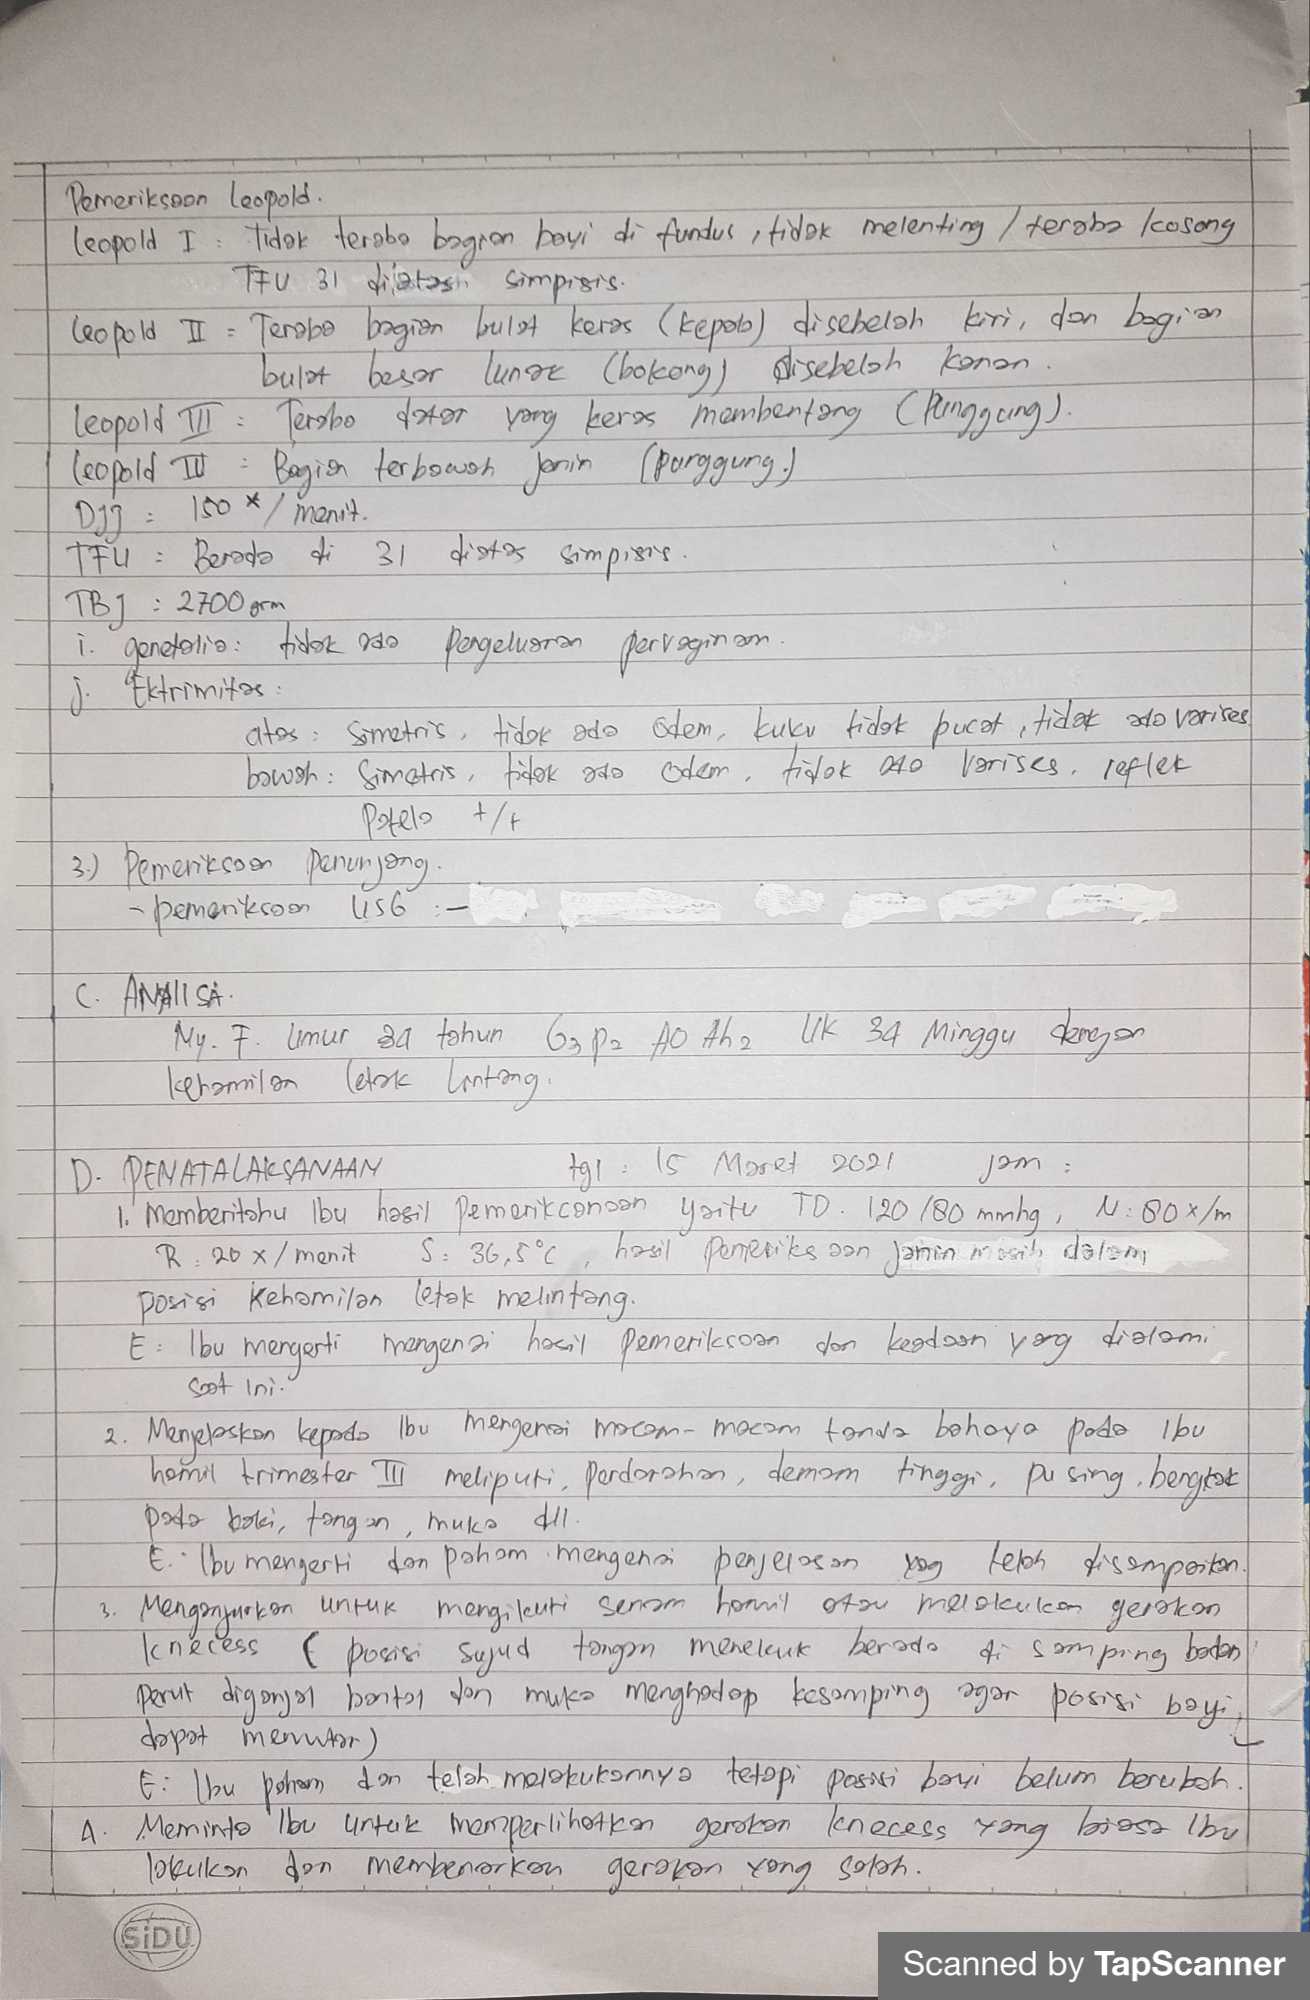 Pemeriksaan Leopold.
Leopold I : Tidak teraba bagian bayi di fundus, tidak melenting / teraba kosong
TFU 31 diatas simpisis.
Leopold II = Teraba bagian bulat keras (kepala) disebelah kiri, dan bagian
bulat besar lunak (bokong) disebelah kanan.
Leopold III : Teraba datar yang keras membentang (Punggung).
Leopold IV : Bagian terbawah janin (punggung.)
DJJ : 150 x/menit.
TFU : Berada di 31 diatas simpisis.
TBJ : 2700 grm
i. genetalia : tidak ada pengeluaran pervaginam.
j. Ektrimitas :
atas : Simetris, tidak ada odem, kuku tidak pucat, tidak ada varises
bawah : Simetris, tidak ada odem, tidak ada varises, reflek
Patela +/+
3.) Pemeriksaan Penunjang.
- pemeriksaan USG : -
C. ANALISA.
Ny. F. Umur 34 tahun G3 P2 A0 Ah2 UK 34 Minggu dengan
kehamilan letak lintang.
D. PENATALAKSANAAN tgl : 15 Maret 2021 jam :
1. Memberitahu Ibu hasil pemerikconaan yaitu TD. 120/80 mmhg, N : 80 x/m
R : 20 x/menit S : 36,5°C, hasil pemeriksaan janin masih dalam
posisi kehamilan letak melintang.
E : Ibu mengerti mengenai hasil pemeriksaan dan keadaan yang dialami
saat ini.
2. Menjelaskan kepada Ibu mengenai macam-macam tanda bahaya pada Ibu
hamil trimester III meliputi, perdarahan, demam tinggi, pusing, bengkak
pada kaki, tangan, muka dll.
E : Ibu mengerti dan paham mengenai penjelasan yag telah disampaikan.
3. Menganjurkan untuk mengikuti senam hamil atau melakukan gerakan
knecess ( posisi sujud tangan menekuk berada di samping badan
perut diganjal bantal dan muka menghadap kesamping agar posisi bayi
dapat memutar)
E : Ibu paham dan telah melakukannya tetapi posisi bayi belum berubah.
4. Meminta Ibu untuk memperlihatkan gerakan knecess yang biasa Ibu
lakukan dan membenarkan gerakan yang salah.
SiDU
Scanned by TapScanner